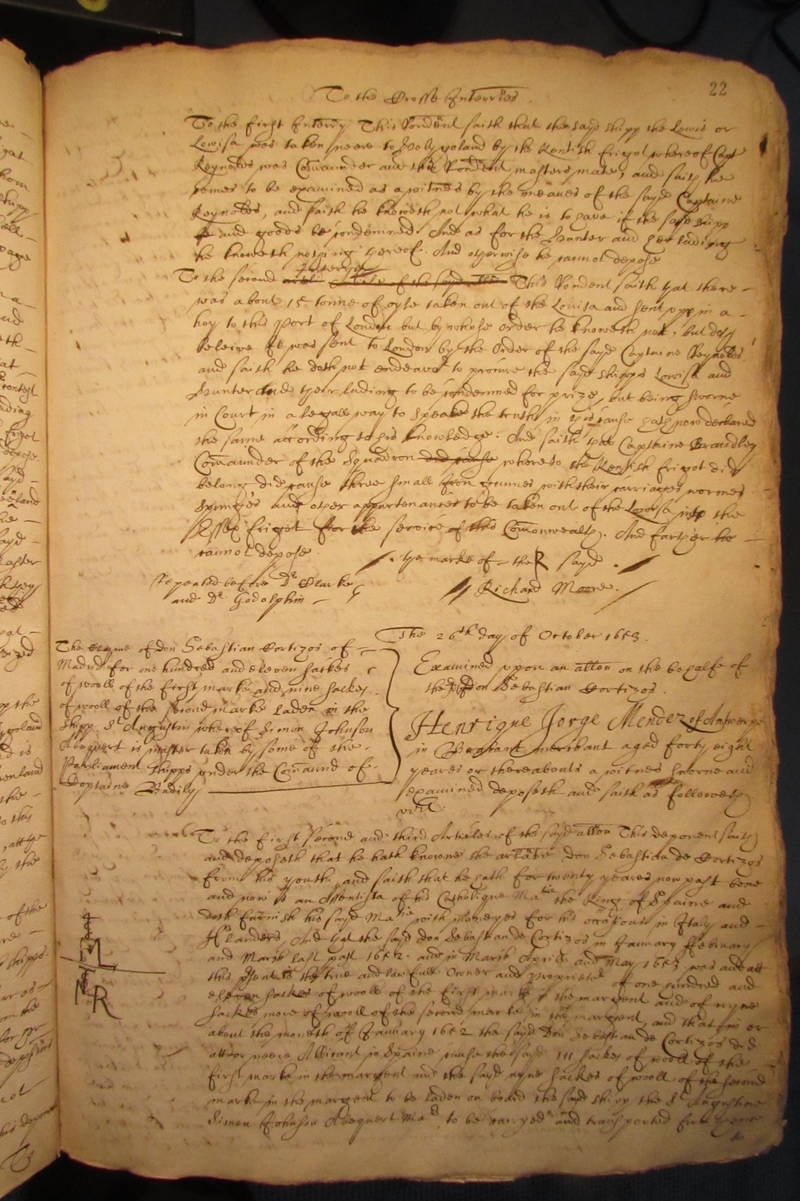 22
To the Crosse Interries.
To the first Interry This Rendent saith that the sayd shipp the Lewis or
Lowisa was taken neere to Holly yland by the Kentish ffrigot whereof Capt
Reynolds was Comander and this Rendent masters mate, and saith he
comes to be examined as a witnes by the meanes of the sayd Captaine
Reynolds, and saith he knoweth not what he is to have if the said shipp
and goods be condemned. And as for the Hunter and her ladeing
he knoweth nothing thereof. And otherwise he cannot depose
To the second Interrie This Rendent saith that there
was about 15 tonne of oyle taken out of the Louisa and sent upp in a
hoy to this Port of London but by whose order he knoweth not, but doth
beleive it was sent to London by the Order of the sayd Captaine Reynolds
and saith he doth not endeavor to procure the sayd shipps Lowisa and
Hunter and their ladeing to be condemned for prize, but being sworne
in Court in a legall way to speake the truth in this cause hath now declared
the same according to his knowledge. And saith that Captaine Bradley
Comander of the Squadron whereto the Kentish frigot did
belong did cause three small Iron gunnes with their carriages wormes
spunges and other appartenances to be taken out of the Lowisa into the
Essex frigot for the service of this Comonwealth. And farther he
cannot depose
The marke of the R sayd
Richard Moore.
Repeated before Dr Clarke
and Dr Godolphin
The 26th day of October 1653.
The clayme of don Sebastian Cortizos of
Madrid for one hundred and eleven sackes
of wooll of the first marke and nine sackes
of wooll of the second marke laden in the
shipp St Augustin whereof Simon Johnson
Bequert is master taken by some of the
Parliament shipps under the Comaund of
Captaine Badily
Examined upon an allon on the behalfe of
the sd don Sebastian Cortizos.
Henrique Jorge Mendez of Antwerpe
in Brabant merchant aged forty eight
yeares or thereabouts a witnes sworne and
examined deposeth and saith as followeth
vizt
To the first second and third Articles of the sayd allon This deponent saith
and deposeth that he hath knowne the arlate don Sebastian de Cortizos
from his youth, and saith that he hath for twenty yeares now past bene
and now is an Assentista of his Catholique Matie the King of Spaine and
doth furnish his sayd Matie with moneyes for his occasions in Italy and
fflanders, And that the sayd don Sebastian de Cortizos in January ffebruary
and March last past 1652. and in March Aprill and May 1653 was and att
this present is the true and lawfull Owner and Proprietor of one hundred and
eleven sackes of wooll of the first marke in the margent and of nyne
sackes more of wooll of the second marke in the margent and that in or
about the moneth of January 1652 the sayd Don Sebastian de Cortizos did
att or neere Allicant in Spaine cause the sayd 111 sackes of wooll of the
first marke in the margent and the sayd nyne sackes of wooll of the second
marke in the margent to be laden on board the shipp the St Augustine
Simon Johnson Bequert Mar to be carryed and transported from thence
to